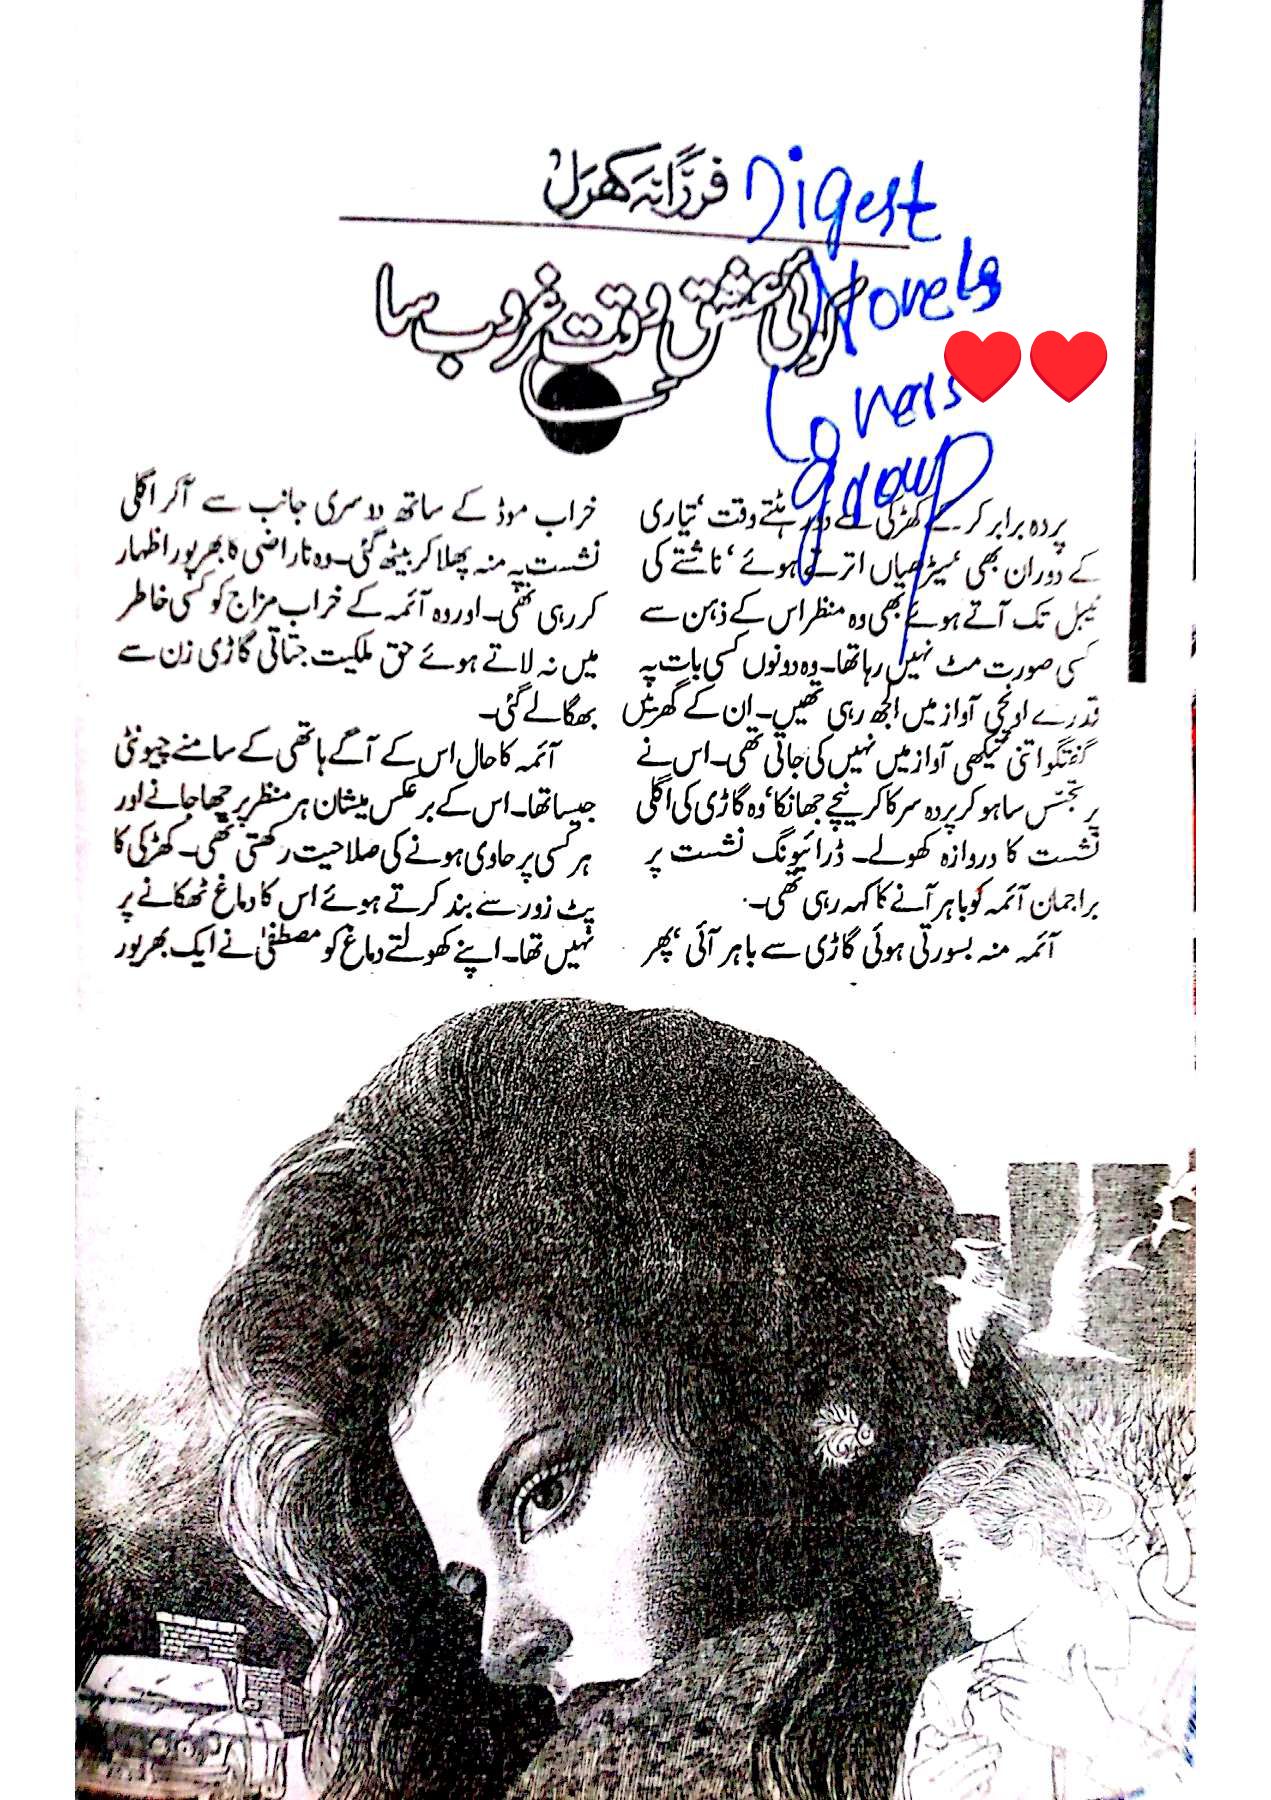 فرزانہ کھرل
Digest
Novels
Lovers
group
کوئی عشق وقت غروب سا
پردہ برابر کر کے کھڑکی سے دور ہٹتے وقت‘ تیاری
کے دوران بھی سیڑھیاں اترتے ہوئے‘ ناشتے کی
ٹیبل تک آتے ہوئے بھی وہ منظر اس کے ذہن سے
کسی صورت مٹ نہیں رہا تھا۔ وہ دونوں کسی بات پہ
قدرے اونچی آواز میں الجھ رہی تھیں۔ ان کے گھر میں
گفتگو اتنی تیکھی آواز میں نہیں کی جاتی تھی۔ اس نے
پر تجسّس سا ہو کر پردہ سرکا کر نیچے جھانکا‘ وہ گاڑی کی اگلی
نشست کا دروازہ کھولے۔ ڈرائیونگ نشست پر
براجمان آئمہ کو باہر آنے کا کہہ رہی تھی۔
آئمہ منہ بسورتی ہوئی گاڑی سے باہر آئی‘ پھر
خراب موڈ کے ساتھ دوسری جانب سے آکر اگلی
نشست پہ منہ پھلا کر بیٹھ گئی۔ وہ ناراضی کا بھرپور اظہار
کر رہی تھی۔ اور وہ آئمہ کے خراب مزاج کو کسی خاطر
میں نہ لاتے ہوئے حق ملکیت جتاتی گاڑی زن سے
بھگا لے گئی۔
آئمہ کا حال اس کے آگے ہاتھی کے سامنے چیونٹی
جیسا تھا۔ اس کے برعکس میشان ہر منظر پر چھا جانے اور
ہر کسی پر حاوی ہونے کی صلاحیت رکھتی تھی۔ کھڑکی کا
پٹ زور سے بند کرتے ہوئے اس کا دماغ ٹھکانے پر
نہیں تھا۔ اپنے کھولتے دماغ کو مصطفیٰ نے ایک بھرپور